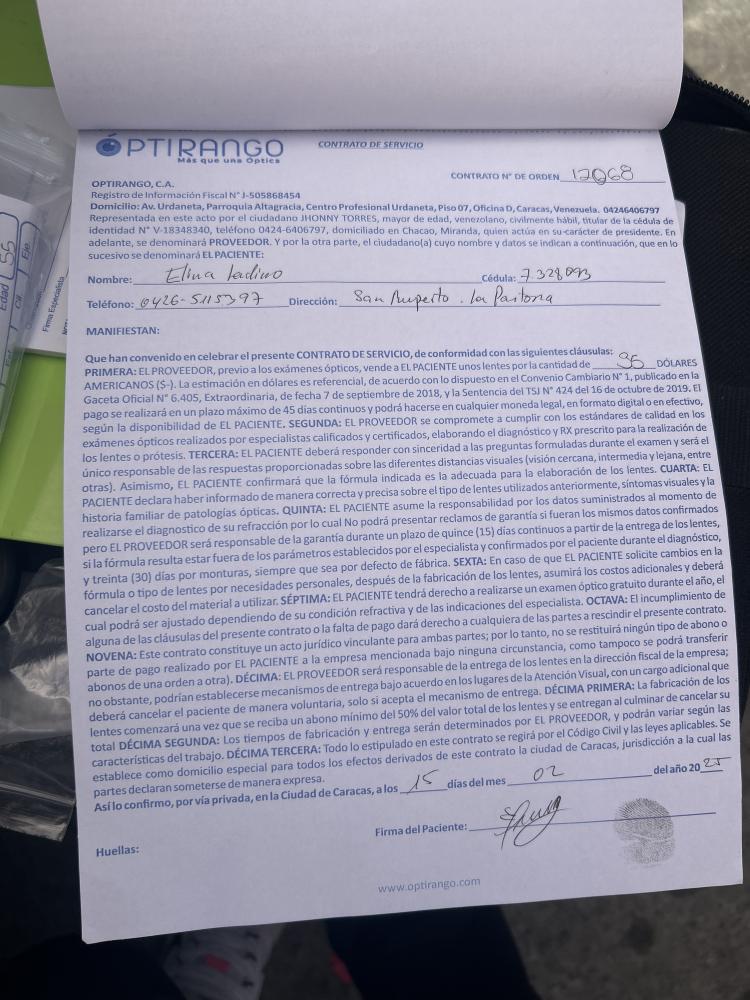 OPTIRANGO
Más que una Óptica
CONTRATO DE SERVICIO
CONTRATO N° DE ORDEN 12068
OPTIRANGO, C.A.
Registro de Información Fiscal N° J-505868454
Domicilio: Av. Urdaneta, Parroquia Altagracia, Centro Profesional Urdaneta, Piso 07, Oficina D, Caracas, Venezuela. 04246406797
Representada en este acto por el ciudadano JHONNY TORRES, mayor de edad, venezolano, civilmente hábil, titular de la cédula de
identidad N° V-18348340, teléfono 0424-6406797, domiciliado en Chacao, Miranda, quien actúa en su carácter de presidente. En
adelante, se denominará PROVEEDOR. Y por la otra parte, el ciudadano(a) cuyo nombre y datos se indican a continuación, que en lo
sucesivo se denominará EL PACIENTE:
Nombre: Elina Ladino Cédula: 7.328093
Teléfono: 0426-5115397 Dirección: San Ruperto. La Pastora
MANIFIESTAN:
Que han convenido en celebrar el presente CONTRATO DE SERVICIO, de conformidad con las siguientes cláusulas:
PRIMERA: EL PROVEEDOR, previo a los exámenes ópticos, vende a EL PACIENTE unos lentes por la cantidad de 35 DÓLARES
AMERICANOS ($-). La estimación en dólares es referencial, de acuerdo con lo dispuesto en el Convenio Cambiario N° 1, publicado en la
Gaceta Oficial N° 6.405, Extraordinaria, de fecha 7 de septiembre de 2018, y la Sentencia del TSJ N° 424 del 16 de octubre de 2019. El
pago se realizará en un plazo máximo de 45 días continuos y podrá hacerse en cualquier moneda legal, en formato digital o en efectivo,
según la disponibilidad de EL PACIENTE. SEGUNDA: EL PROVEEDOR se compromete a cumplir con los estándares de calidad en los
exámenes ópticos realizados por especialistas calificados y certificados, elaborando el diagnóstico y RX prescrito para la realización de
los lentes o prótesis. TERCERA: EL PACIENTE deberá responder con sinceridad a las preguntas formuladas durante el examen y será el
único responsable de las respuestas proporcionadas sobre las diferentes distancias visuales (visión cercana, intermedia y lejana, entre
otras). Asimismo, EL PACIENTE confirmará que la fórmula indicada es la adecuada para la elaboración de los lentes. CUARTA: EL
PACIENTE declara haber informado de manera correcta y precisa sobre el tipo de lentes utilizados anteriormente, síntomas visuales y la
historia familiar de patologías ópticas. QUINTA: EL PACIENTE asume la responsabilidad por los datos suministrados al momento de
realizarse el diagnostico de su refracción por lo cual No podrá presentar reclamos de garantía si fueran los mismos datos confirmados
pero EL PROVEEDOR será responsable de la garantía durante un plazo de quince (15) días continuos a partir de la entrega de los lentes,
si la fórmula resulta estar fuera de los parámetros establecidos por el especialista y confirmados por el paciente durante el diagnóstico,
y treinta (30) días por monturas, siempre que sea por defecto de fábrica. SEXTA: En caso de que EL PACIENTE solicite cambios en la
fórmula o tipo de lentes por necesidades personales, después de la fabricación de los lentes, asumirá los costos adicionales y deberá
cancelar el costo del material a utilizar. SÉPTIMA: EL PACIENTE tendrá derecho a realizarse un examen óptico gratuito durante el año, el
cual podrá ser ajustado dependiendo de su condición refractiva y de las indicaciones del especialista. OCTAVA: El incumplimiento de
alguna de las cláusulas del presente contrato o la falta de pago dará derecho a cualquiera de las partes a rescindir el presente contrato.
NOVENA: Este contrato constituye un acto jurídico vinculante para ambas partes; por lo tanto, no se restituirá ningún tipo de abono o
parte de pago realizado por EL PACIENTE a la empresa mencionada bajo ninguna circunstancia, como tampoco se podrá transferir
abonos de una orden a otra). DÉCIMA: EL PROVEEDOR será responsable de la entrega de los lentes en la dirección fiscal de la empresa;
no obstante, podrían establecerse mecanismos de entrega bajo acuerdo en los lugares de la Atención Visual, con un cargo adicional que
deberá cancelar el paciente de manera voluntaria, solo si acepta el mecanismo de entrega. DÉCIMA PRIMERA: La fabricación de los
lentes comenzará una vez que se reciba un abono mínimo del 50% del valor total de los lentes y se entregan al culminar de cancelar su
total DÉCIMA SEGUNDA: Los tiempos de fabricación y entrega serán determinados por EL PROVEEDOR, y podrán variar según las
características del trabajo. DÉCIMA TERCERA: Todo lo estipulado en este contrato se regirá por el Código Civil y las leyes aplicables. Se
establece como domicilio especial para todos los efectos derivados de este contrato la ciudad de Caracas, jurisdicción a la cual las
partes declaran someterse de manera expresa.
Así lo confirmo, por vía privada, en la Ciudad de Caracas, a los 15 días del mes 02 del año 2025
Firma del Paciente:
Huellas:
www.optirango.com
Edad 55
Eje
Cil
Firma Especialista